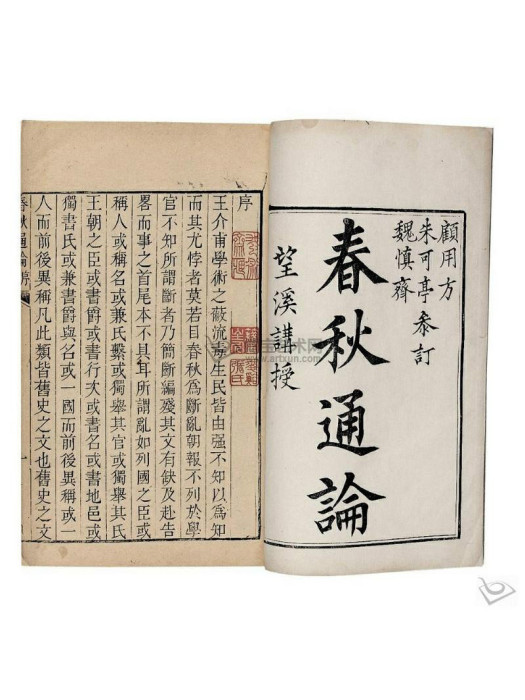 顧用方
朱可亭 叅訂
魏慎齋
春秋通論
望溪講授
序
王介甫學術之蔽流毒生民皆由强不知以為知
而其尤悖者莫若目春秋為斷亂朝報不列於學
官不知所謂斷者乃簡斷編殘其文有缺及赴告
畧而事之首尾本不具耳所謂亂如列國之臣或
稱人或稱名或兼氏繫或獨舉其官或獨舉其氏
王朝之臣或書爵或書行次或書名或書地邑或
獨書氏或兼書爵與名或一國而前後異稱或一
人而前後異稱凡此類皆舊史之文也舊史之文
春秋通論序
一
www.artxun.com